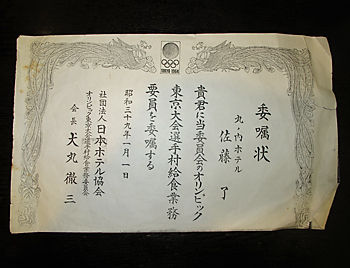 TOKYO 1964
委嘱状
丸ノ内ホテル
佐藤 了
貴君に当委員会のオリンピック
東京大会選手村給食業務
要員を委嘱する
昭和三十九年一月一日
社団法人 日本ホテル協会
オリンピック東京大会選手村給食業務委員会
会長 犬丸徹三